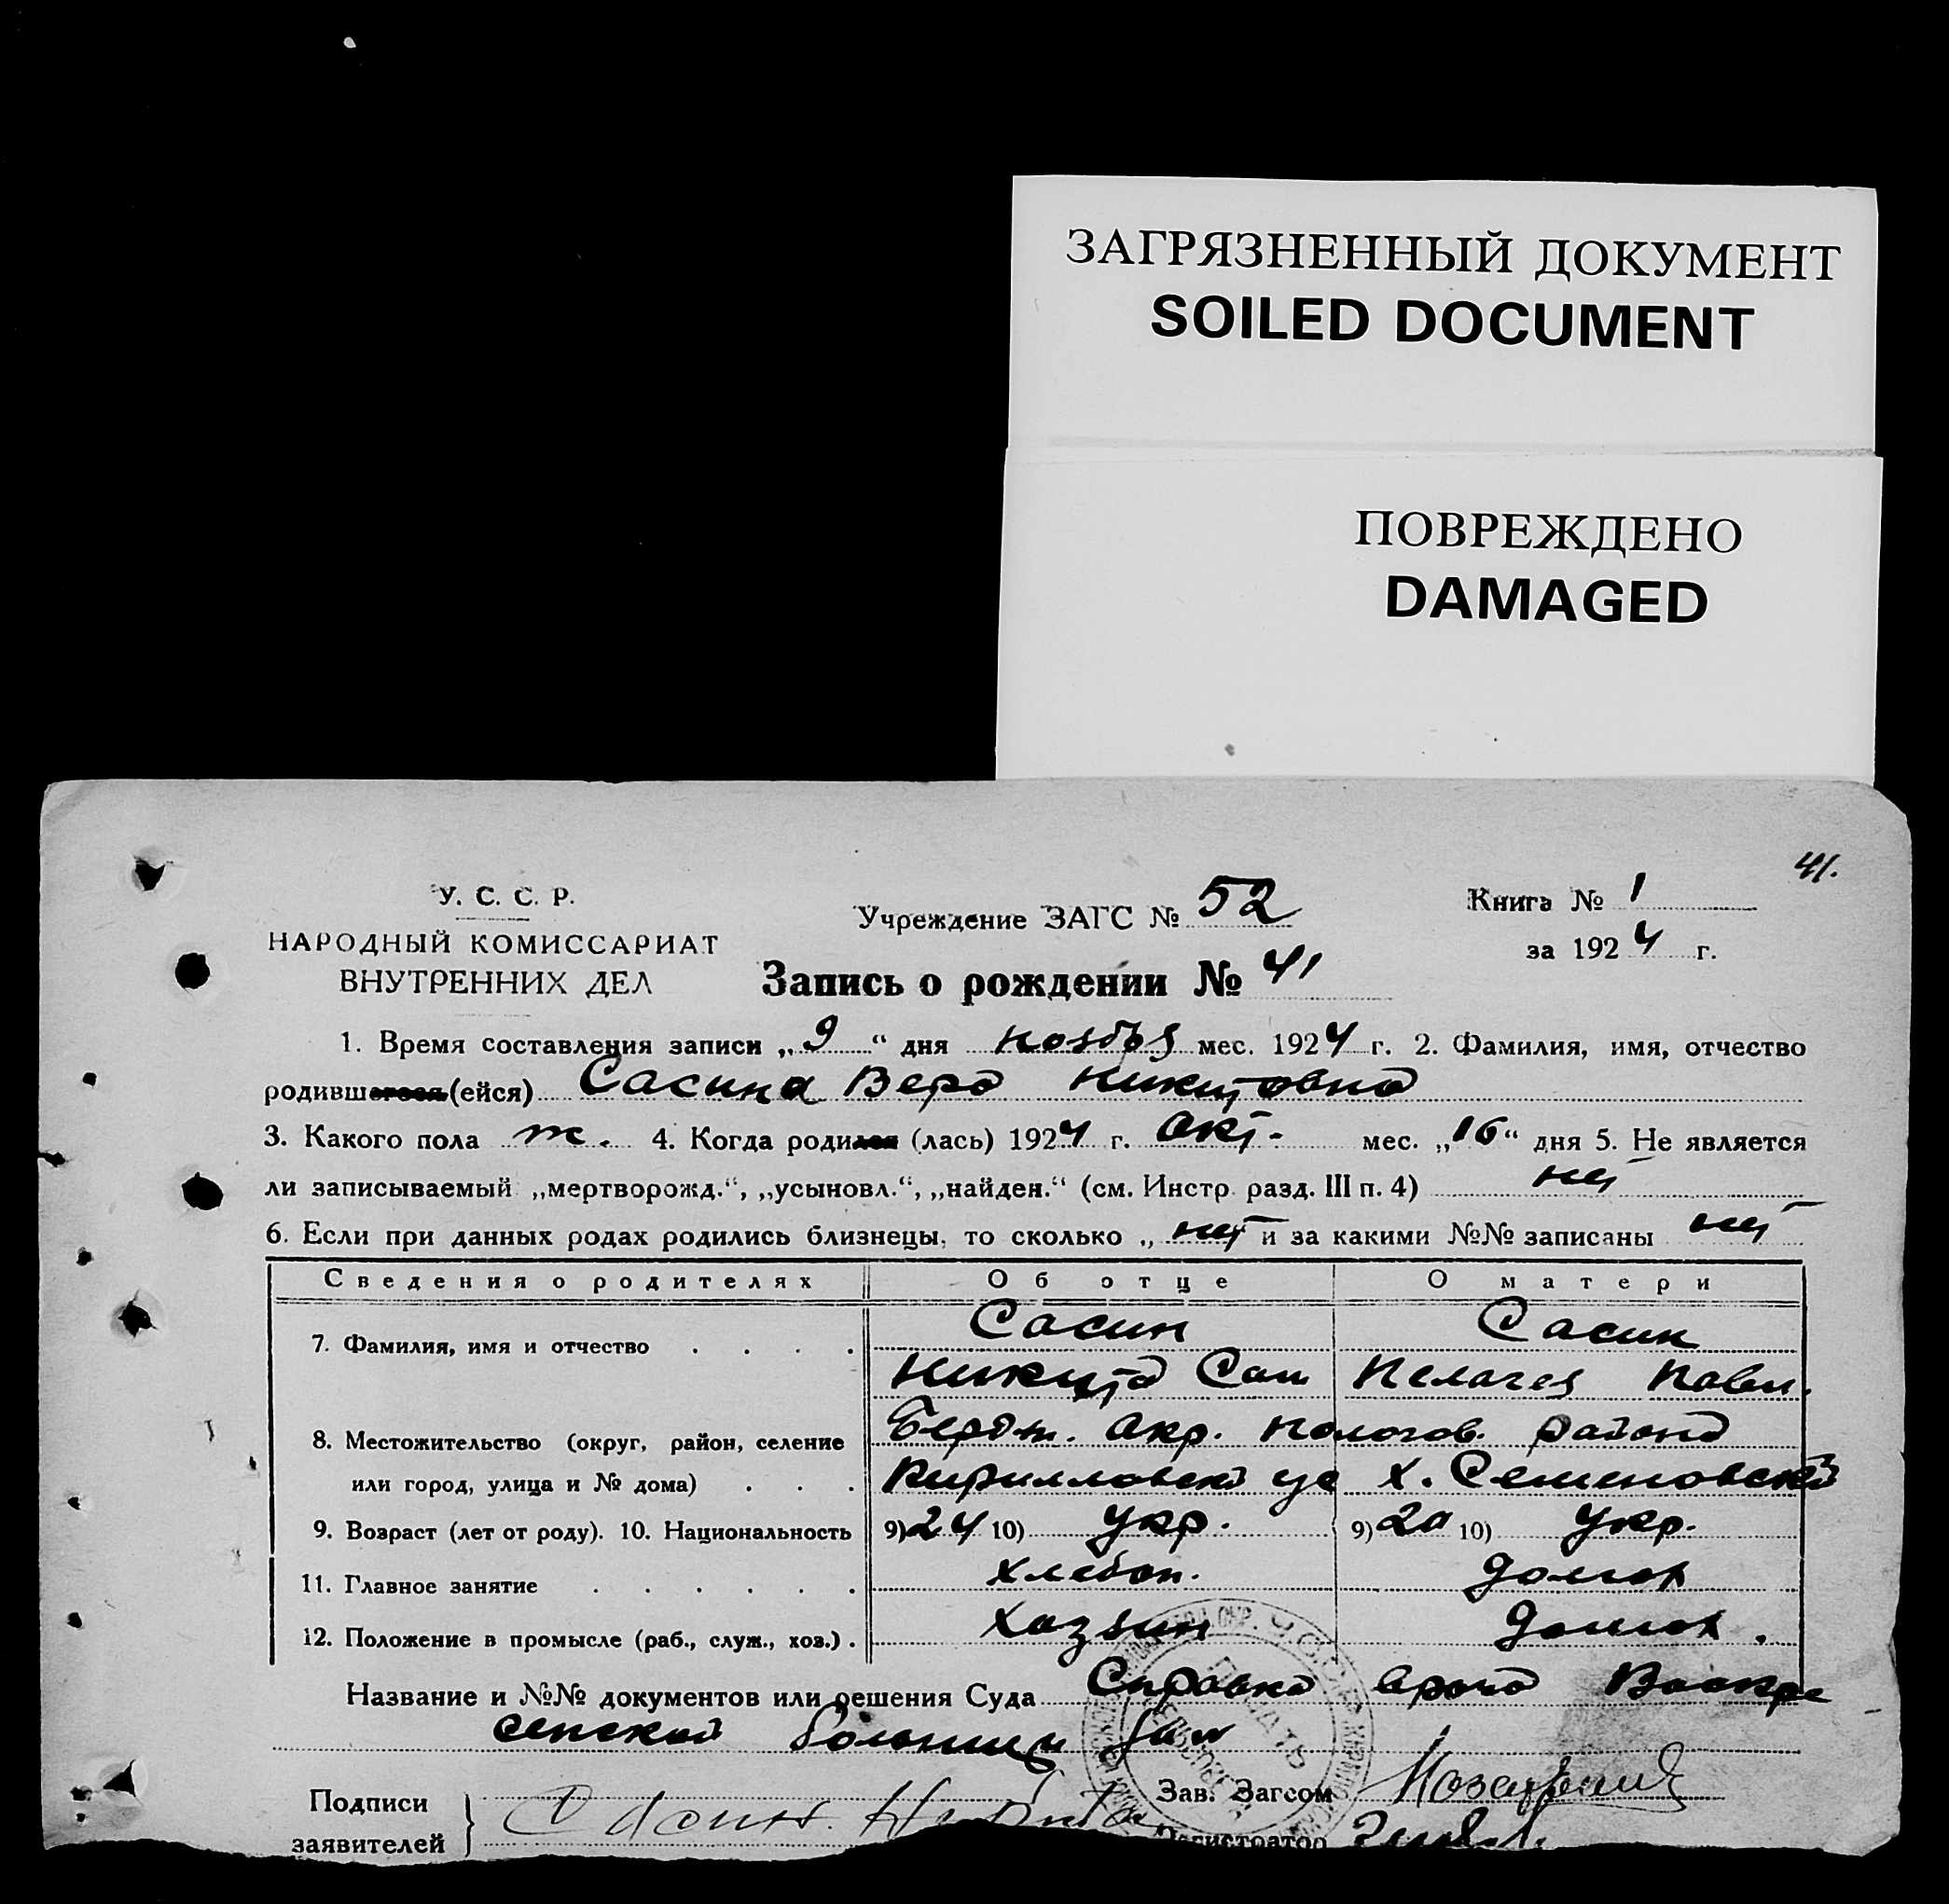 ЗАГРЯЗНЕННЫЙ ДОКУМЕНТ
SOILED DOCUMENT
ПОВРЕЖДЕНО
DAMAGED
41.
У. С. С. Р.
НАРОДНЫЙ КОМИССАРИАТ
ВНУТРЕННИХ ДЕЛ
Учреждение ЗАГС № 52
Книга № 1
за 1924 г.
Запись о рождении № 41
1. Время составления записи „9“ дня ноября мес. 1924 г. 2. Фамилия, имя, отчество
родившегося (ейся) Сасина Вера Никитовна
3. Какого пола ж. 4. Когда родился (лась) 1924 г. Окт. мес. „16“ дня 5. Не является
ли записываемый „мертворожд.“, „усыновл.“, „найден.“ (см. Инстр. разд. III п. 4) нет
6. Если при данных родах родились близнецы, то сколько „ нет и за какими №№ записаны нет
Сведения о родителях Об отце О матери
7. Фамилия, имя и отчество Сасин Сасин
Никита Сам Пелагея Павл.
8. Местожительство (округ, район, селение Бердян. Окр. Пологов. района
или город, улица и № дома) Кирилловск х. Семеновский
9. Возраст (лет от роду). 10. Национальность 9) 24 10) Укр. 9) 20 10) Укр.
11. Главное занятие Хлебоп. Домох
12. Положение в промысле (раб., служ., хоз.) Хозяин Домох.
Название и №№ документов или решения Суда Справка врача Воскре
сенской больницы
Подписи
заявителей
Сасин. Никита
Зав. Загсом
Регистратор